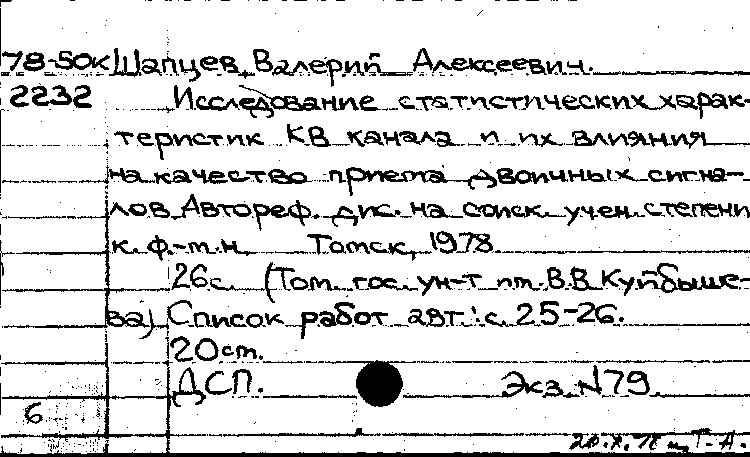 78-50к Шапцев, Валерий Алексеевич.
2232 Исследование статистических харак-
теристик КВ канала и их влияния
на качество приема двоичных сигна-
лов. Автореф. дис. на соиск. учен. степени
к. ф.-т.н. Томск, 1978
26с. (Том. гос. ун-т им. В.В Куйбыше-
ва) Список работ авт.: с. 25-26.
20cm.
ДСП. Экз. N79.
6